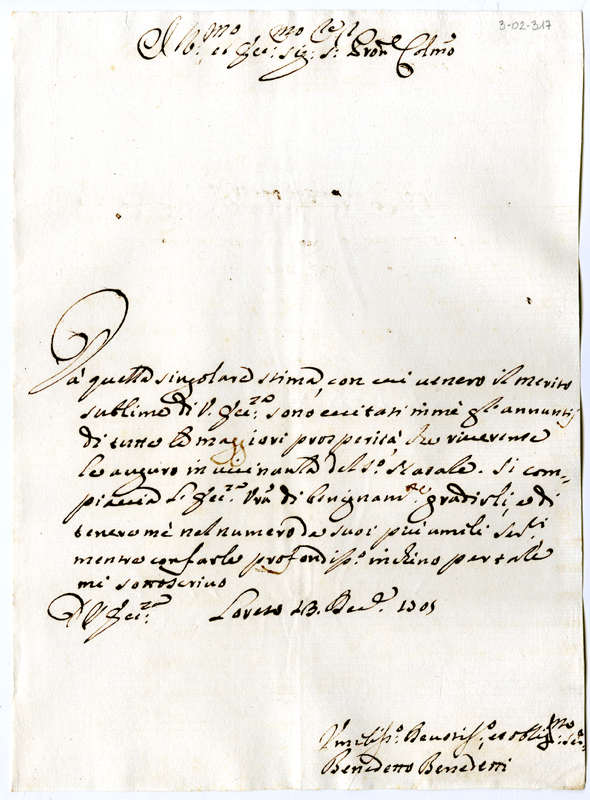 3-02-317
Ill.mo et Ecc.mo Sig.r S.r Pron.e Col.mo
Da quella singolare stima, con cui venero il merito
sublime di V. Ecc.za sono eccitati in mè gl'annuntij
di tutte le maggiori prosperità, che riverente
le auguro in vicinanza del S.o Natale. Si com-
piaccia L'Ecc.za V.ra di benignam.te gradirli, e di
tenere mè nel numero de suoi più umili Ser.ri
mentre con farle profondiss.o inchino per tale
mi sottoscrivo
D. V. Ecc.za Loreto 13. Dec.e
Umiliss.o Devotiss.o, et oblig.mo Se.re
Benedetto Benedetti